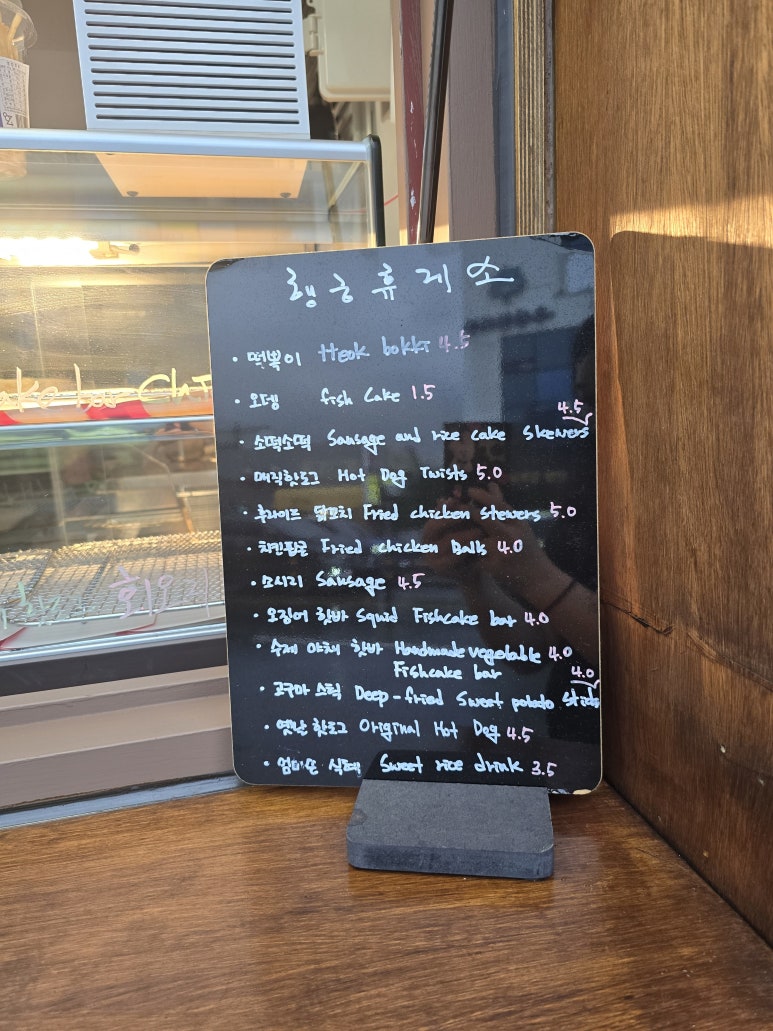 행궁휴게소
• 떡볶이 tteok bokki 4.5
• 오뎅 fish cake 1.5
• 소떡소떡 Sausage and rice cake skewers 4.5
• 매직핫도그 Hot Dog Twists 5.0
• 후라이드 닭꼬치 Fried chicken stewers 5.0
• 치킨팝콘 Fried chicken Balls 4.0
• 소시지 Sausage 4.5
• 오징어 핫바 Squid Fishcake bar 4.0
• 수제 야채 핫바 Handmade vegetable 4.0
Fishcake bar
• 고구마 스틱 Deep-fried Sweet potato sticks 4.0
• 옛날 핫도그 Original Hot Dog 4.5
• 엄마손 식혜 Sweet rice drink 3.5